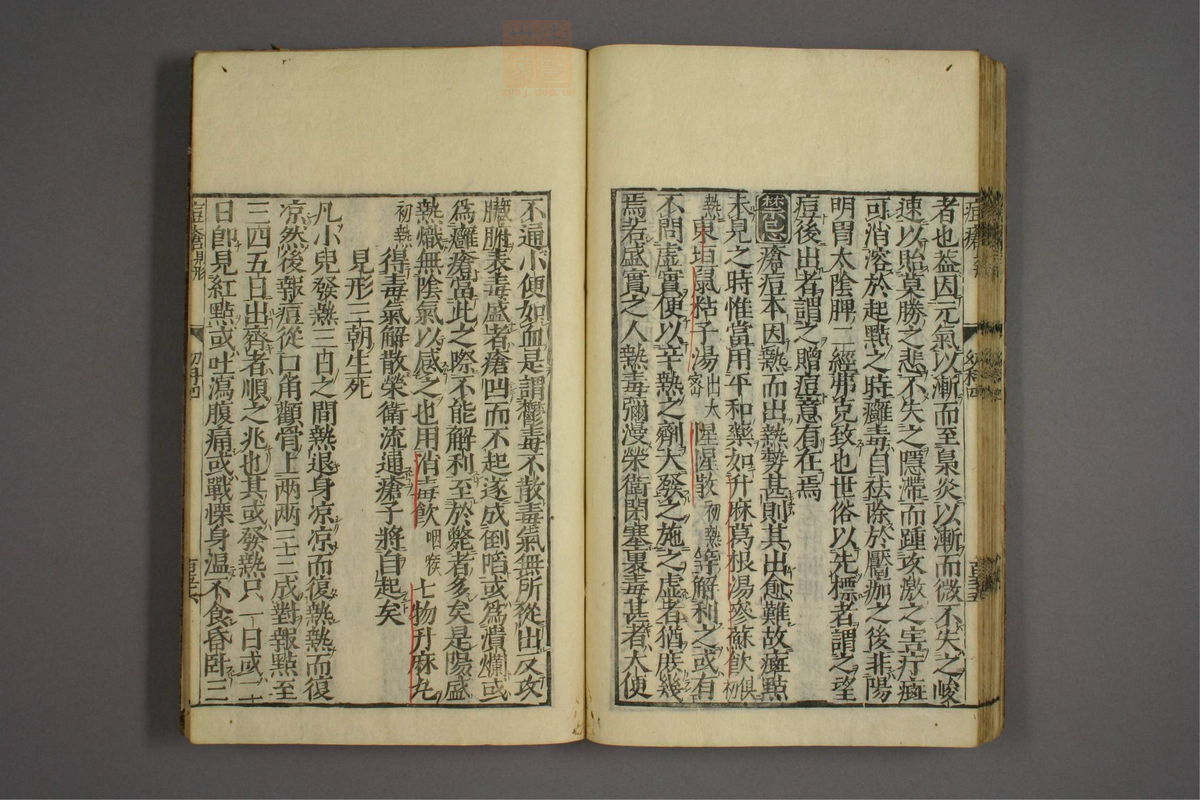 者也蓋因元氣以漸而至梟炎以漸而微不失之峻
速以貽莫勝之悲不失之隱滯而踵攻激之害疔癍
可消溶於起點之時癰毒自祛除於靨痂之後非陽
明胃太陰脾二經弗克致也世俗以先標者謂之望
痘後出者謂之贈痘意有在焉
禁忌 瘡痘本因熱而出熱勢甚則其出愈難故癍點
未見之時惟當用平和藥如升麻葛根湯參蘇飲俱初
熱東垣鼠粘子湯出太密惺惺散初熱等解利之或有
不問虛實便以辛熱之劑大發之施之虛者猶庶幾
焉若盛實之人熱毒彌漫榮衛閉塞裹毒甚者大便
不通小便如血是謂鬱毒不散毒氣無所從出又攻
臟腑表毒盛者瘡凹而不起遂成倒陷或為潰爛或
為癰瘡當此之際不能解利至於斃者多矣是陽盛
熱熾無陰氣以感之也用消毒飲咽喉七物升麻丸
初熱得毒氣解散榮衛流通瘡子將自起矣
見形三朝生死
凡小兒發熱三日之間熱退身凉凉而復熱熱而復
凉然後報痘從口角顴骨上兩兩三三成對報點至
三四五日出齊者順之兆也其或發熱只一日或二
日即見紅點或吐瀉腹痛或戰慄身溫不食昏臥三
痘瘡見形
幼科四
百五六
痘瘡
幼科四
百五五